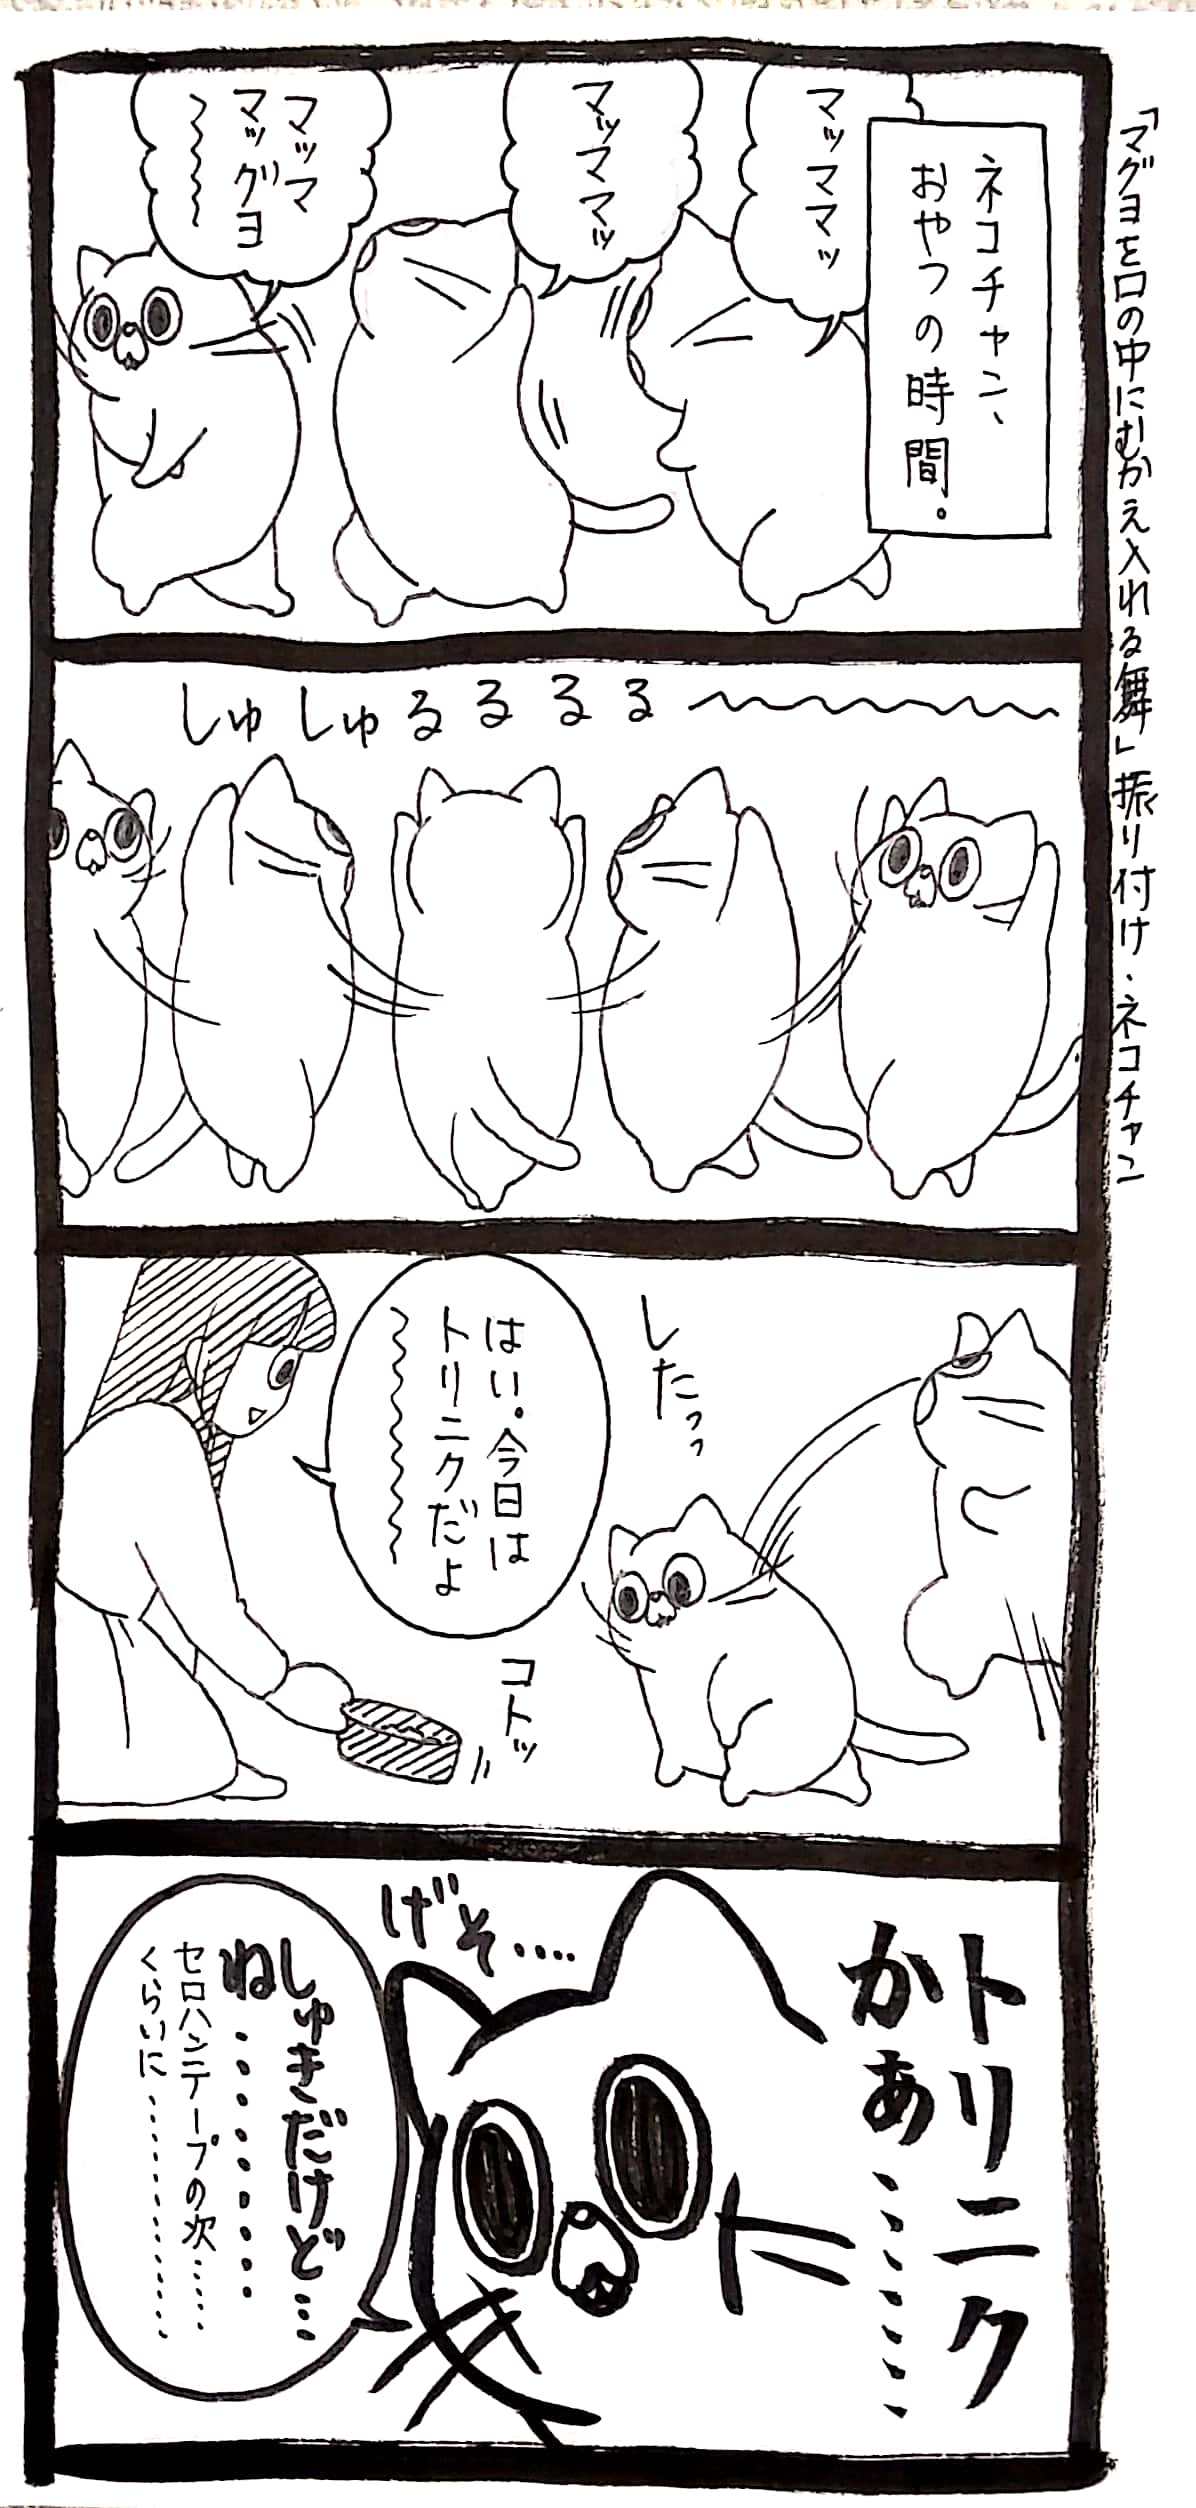 「マグヨを口の中にむかえ入れる舞」振り付け・ネコチャン
ネコチャン、
おやつの時間。
マッママッ
マッママッ
マッマ
マッグヨ
〜〜〜
しゅしゅるるるる〜〜〜〜〜
したっっ
はい。今日は
トリニクだよ
〜〜〜〜〜
コトッ
トリニク
かぁ、、、、、、
げそ‥‥
しゅきだけど…
ね………
セロハンテープの次……
くらいに…………